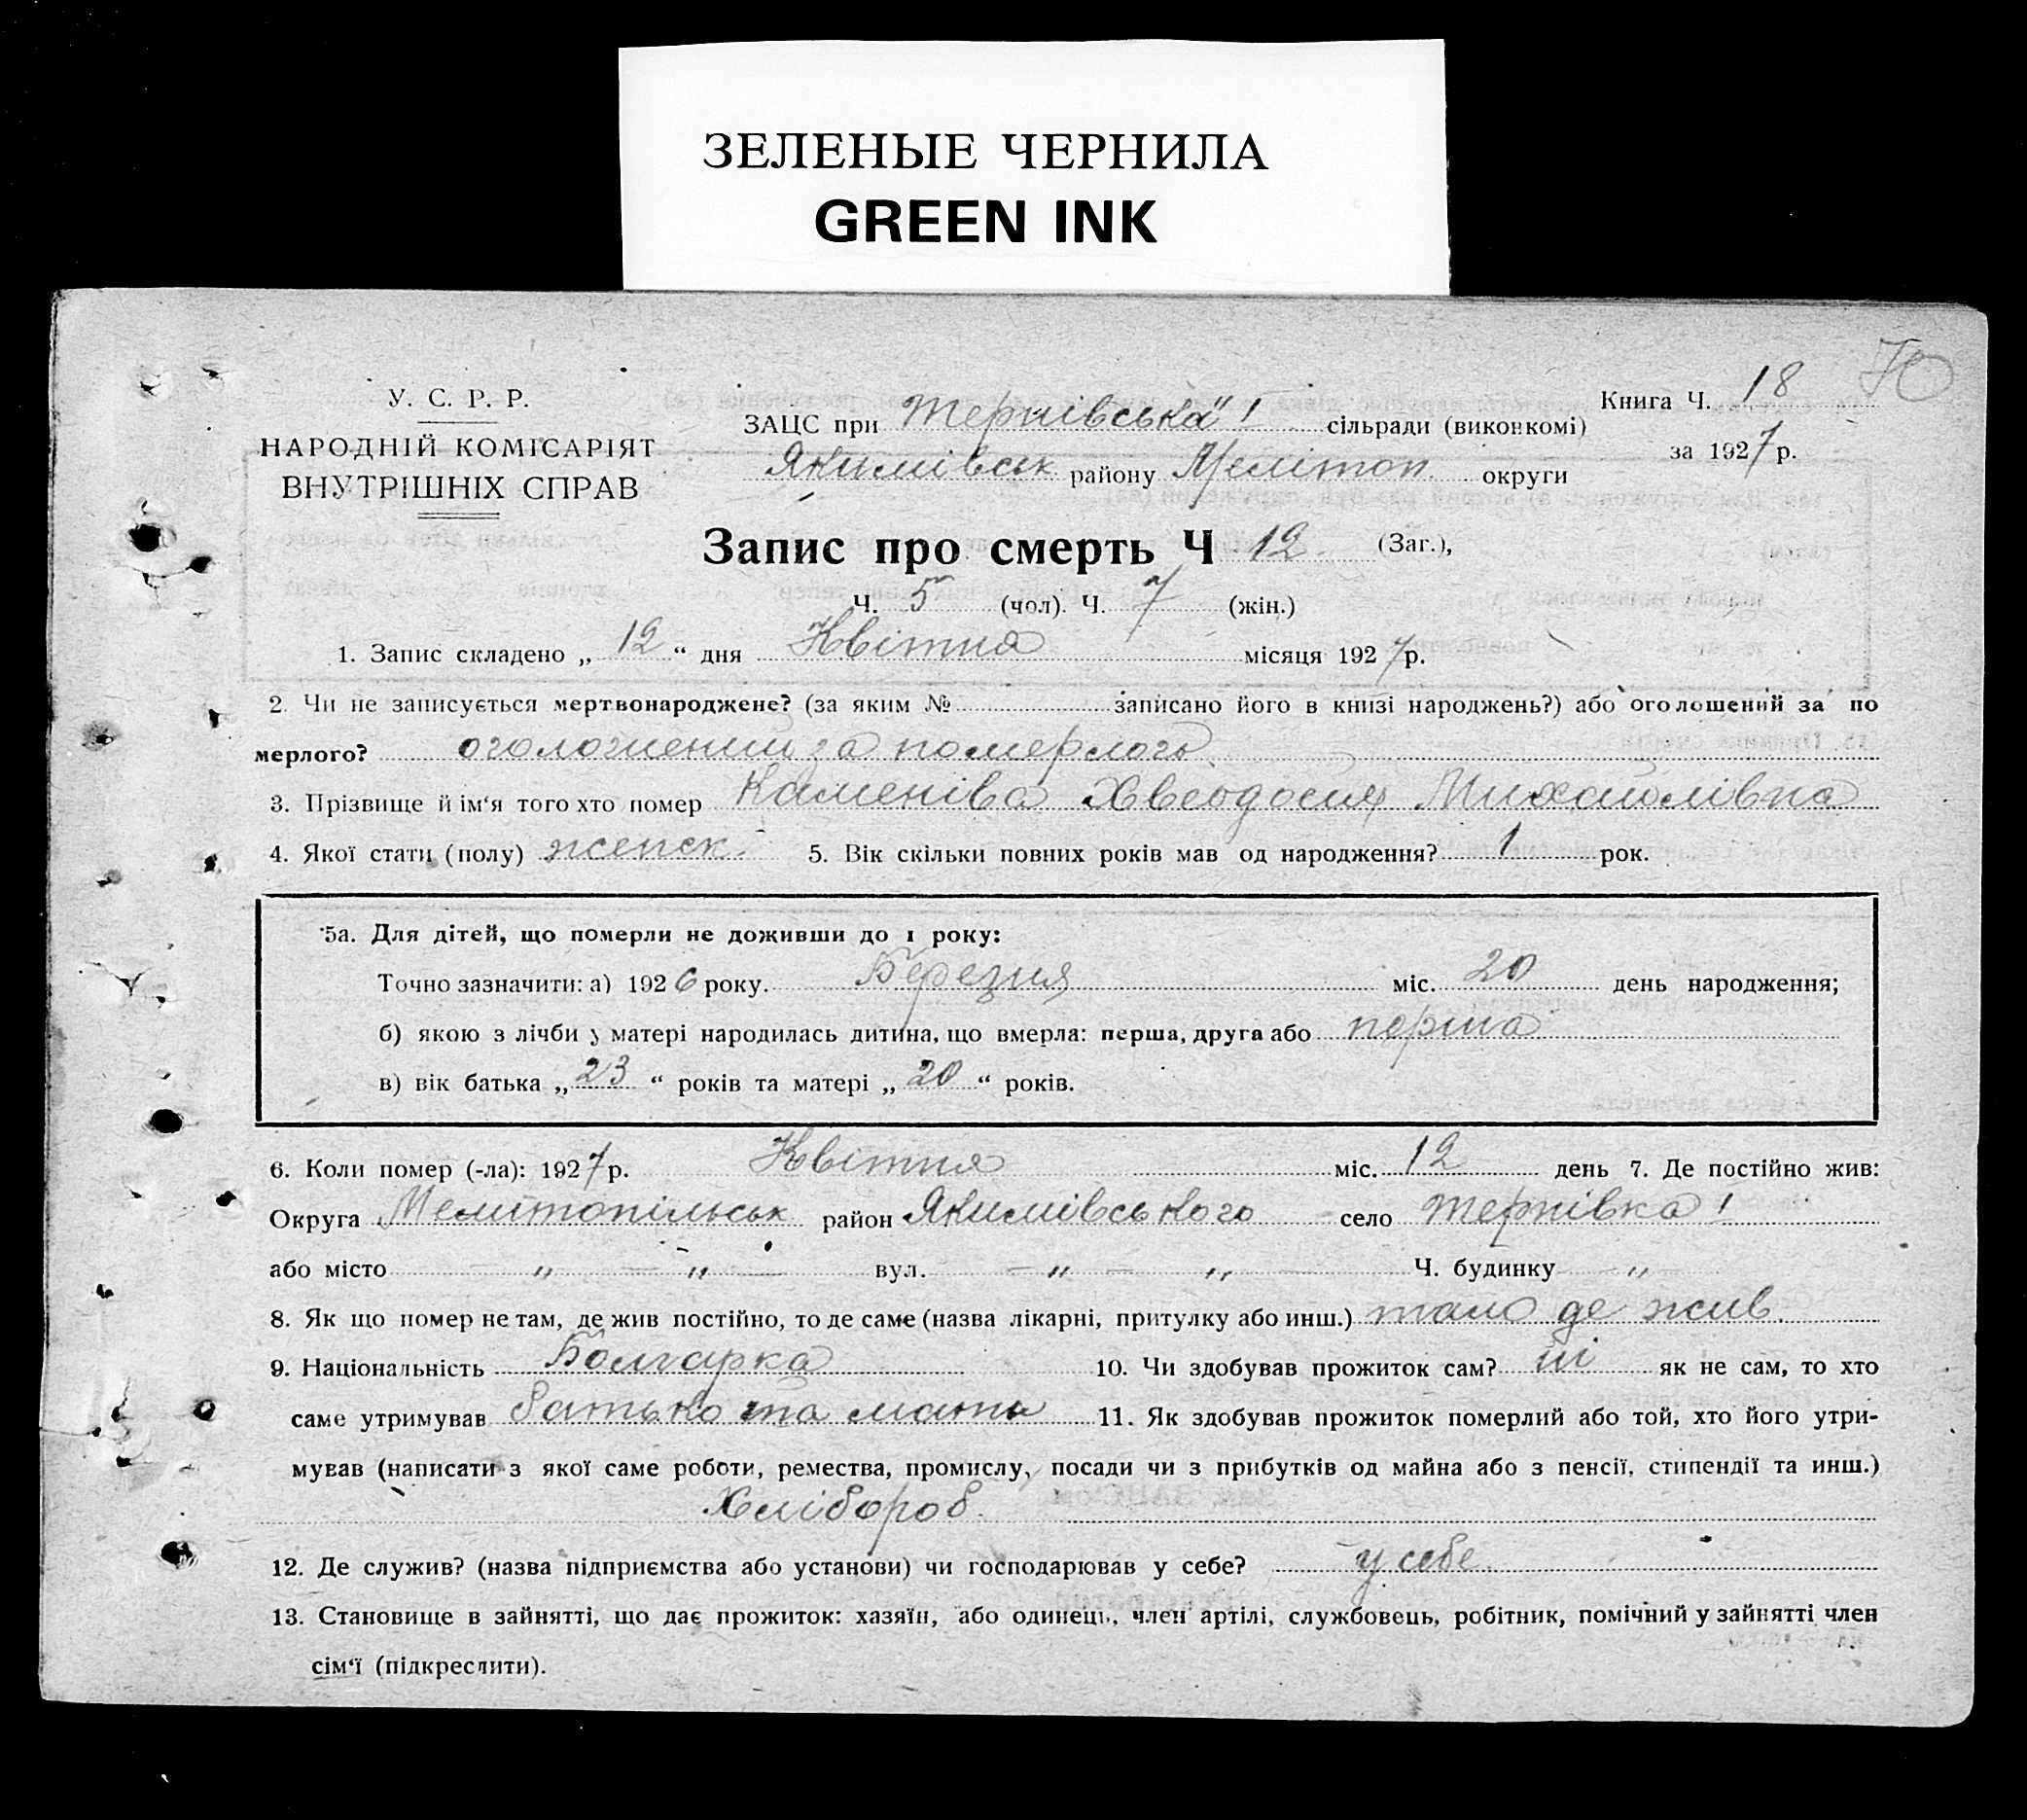 ЗЕЛЕНЫЕ ЧЕРНИЛА
GREEN INK
У. С. Р. Р.
НАРОДНІЙ КОМІСАРІЯТ
ВНУТРІШНІХ СПРАВ
ЗАЦС при Тернівська" I сільради (виконкомі)
Якимівськ району Мелітоп. округи
Книга Ч. 18
за 1927 р.
Запис про смерть Ч 12. (Заг.),
Ч. 5 (чол). Ч. 7 (жін.)
1. Запис складено „ 12 “ дня Квітня місяця 1927 р.
2. Чи не записується мертвонароджене? (за яким № записано його в книзі народжень?) або оголошений за по
мерлого? оголошений за померлого
3. Прізвище й ім‘я того хто помер Каменіва Хвеодосия Михайлівна
4. Якої стати (полу) женск. 5. Вік скільки повних років мав од народження? 1 рок.
5а. Для дітей, що померли не доживши до 1 року:
Точно зазначити: а) 1926 року. Березня міс. 20 день народження;
б) якою з лічби у матері народилась дитина, що вмерла: перша, друга або перша
в) вік батька „ 23 “ років та матері „ 20 “ років.
6. Коли помер (-ла): 1927 р. Квітня міс. 12 день 7. Де постійно жив:
Округа Мелітопільськ район Якимівського село Тернівка I
або місто — „ — „ — вул. — „ — „ — Ч. будинку — „ —
8. Як що помер не там, де жив постійно, то де саме (назва лікарні, притулку або инш.) тамо де жив.
9. Національність Болгарка 10. Чи здобував прожиток сам? ні як не сам, то хто
саме утримував батько та мати 11. Як здобував прожиток померлий або той, хто його утри-
мував (написати з якої саме роботи, ремества, промислу, посади чи з прибутків од майна або з пенсії, стипендії та инш.)
Хлібороб.
12. Де служив? (назва підприємства або установи) чи господарював у себе? у себе.
13. Становище в зайнятті, що дає прожиток: хазяїн, або одинець, член артілі, службовець, робітник, помічний у зайнятті член
сім‘ї (підкреслити).